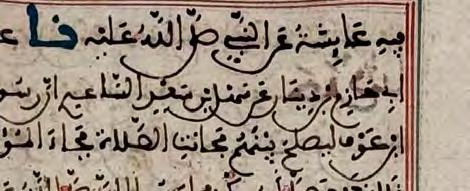 فيه عايشة عن النبي صلى الله عليه نا ع
ابي حازم بن دينار عن سهل بن سعد الساعدي ان رسو
ابن عوف ليصلح بينهم فحانت الصلاة فجاء المؤ